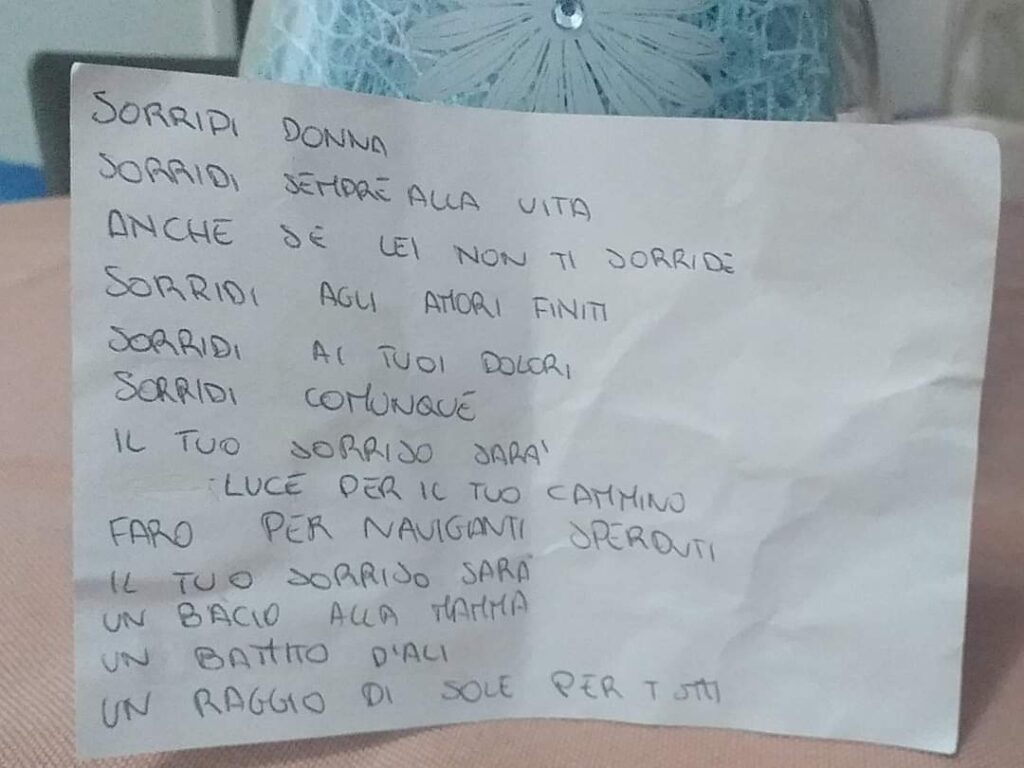 SORRIDI DONNA
SORRIDI SEMPRE ALLA VITA
ANCHE SE LEI NON TI SORRIDE
SORRIDI AGLI AMORI FINITI
SORRIDI AI TUOI DOLORI
SORRIDI COMUNQUE
IL TUO SORRISO SARA'
LUCE PER IL TUO CAMMINO
FARO PER NAVIGANTI SPERDUTI
IL TUO SORRISO SARA'
UN BACIO ALLA MAMMA
UN BATTITO D'ALI
UN RAGGIO DI SOLE PER TUTTI